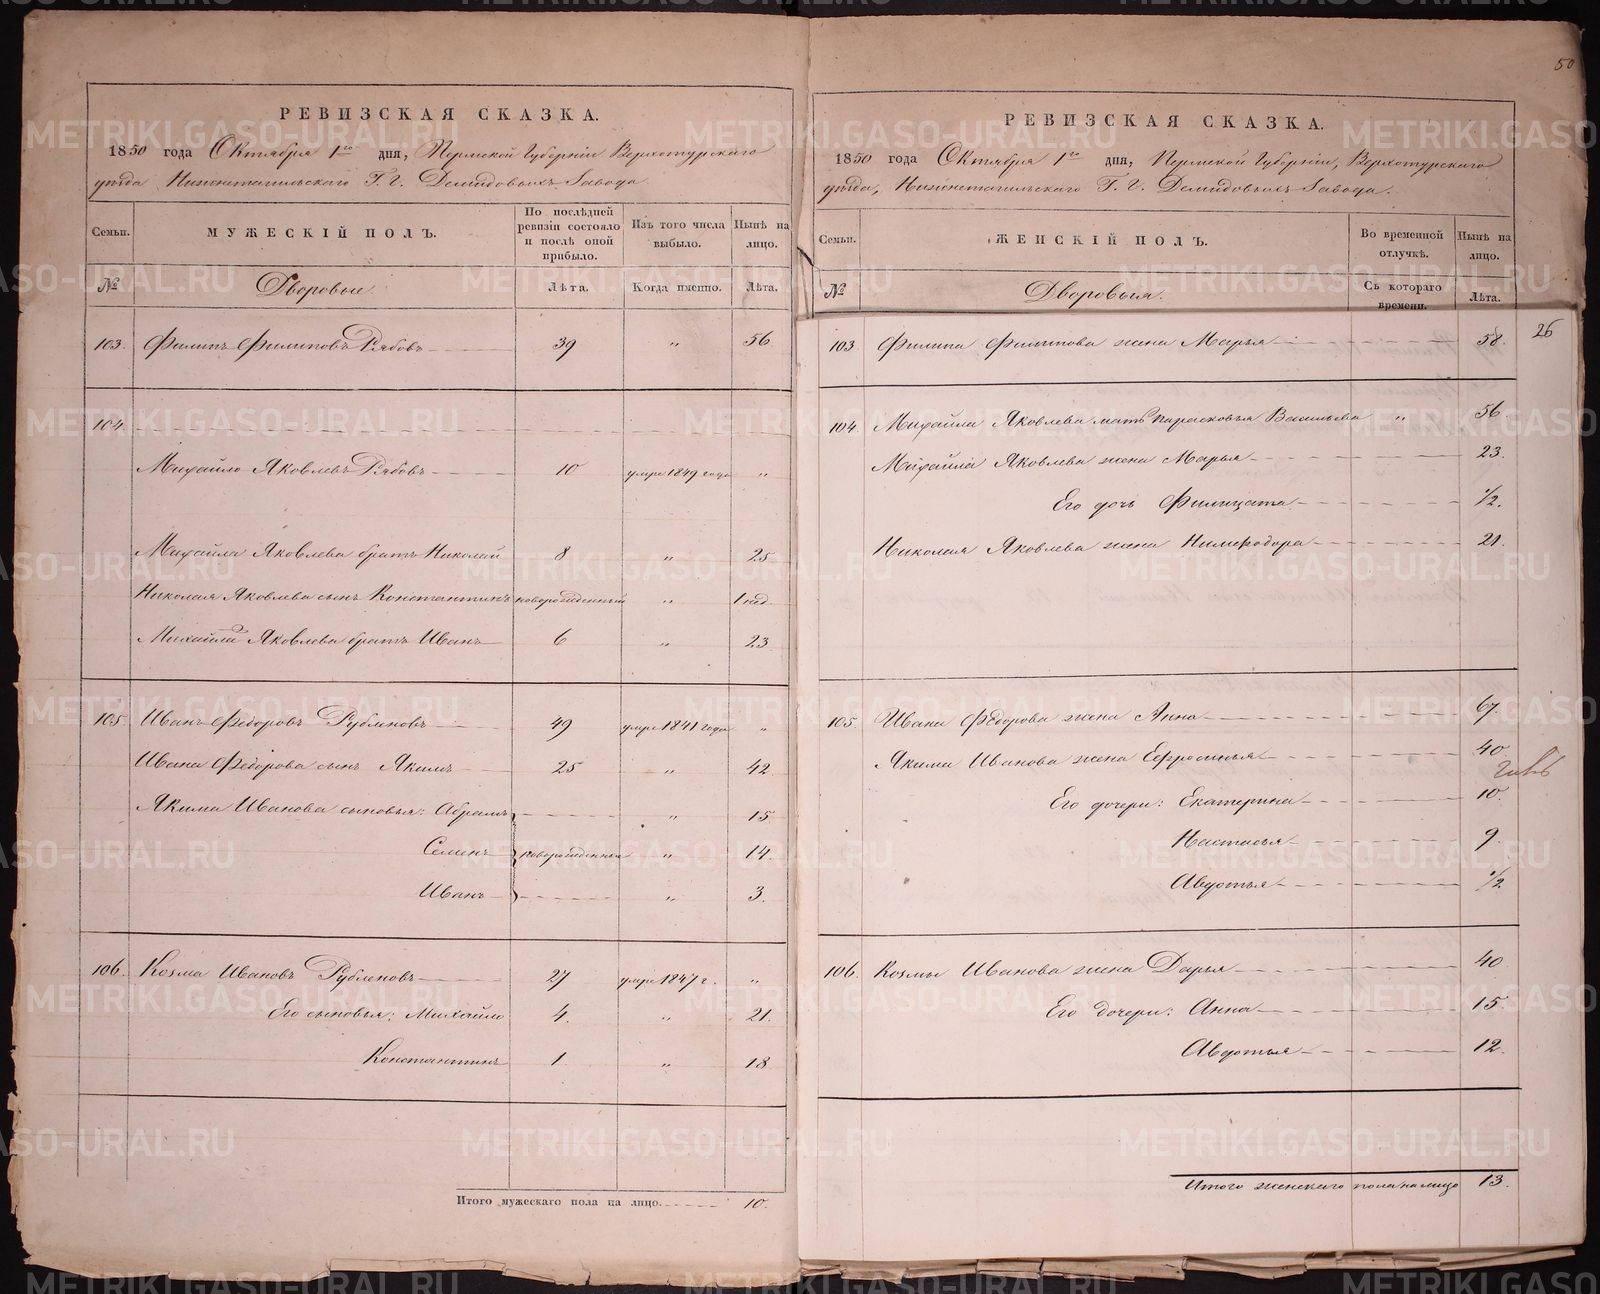 50
РЕВИЗСКАЯ СКАЗКА.
1850 года Октября 1го дня, Пермской Губернiи Верхотурскаго
уѣзда Нижнетагильскаго Г. г. Демидовыхъ Завода
Семьи. МУЖЕСКIЙ ПОЛЪ. По послѣдней ревизiи состояло и послѣ оной прибыло. Изъ того числа выбыло. Нынѣ на лицо.
№ Дворовые. Лѣта. Когда именно. Лѣта.
103. Филипъ Филиповъ Рябовъ 39 " 56
104.
Михайло Яковлевъ Рябовъ 10 умре 1849 года "
Михайла Яковлева братъ Николай 8 " 25
Николая Яковлева сынъ Константинъ новорожденный " 1 год.
Михайла Яковлева братъ Иванъ 6 " 23
105. Иванъ Федоровъ Рубленовъ 49 умре 1841 года "
Ивана Федорова сынъ Якимъ 25 " 42
Якима Иванова сыновья: Абрамъ " 15
Семенъ новорожденные " 14.
Иванъ " 3.
106. Козма Ивановъ Рубленовъ 27 умре 1847 г. "
Его сыновья: Михайло 4. " 21.
Константинъ 1. " 18
Итого мужескаго пола на лицо. 10.
РЕВИЗСКАЯ СКАЗКА.
1850 года Октября 1го дня, Пермской Губернiи, Верхотурскаго
уѣзда, Нижнетагильскаго Г. г. Демидовыхъ Завода.
Семьи. ЖЕНСКIЙ ПОЛЪ. Во временной отлучкѣ. Нынѣ на лицо.
№ Дворовыя. Съ котораго времени. Лѣта.
26
103 Филипа Филипова жена Марья 58.
104. Михайла Яковлева мать Парасковья Васильева " 56
Михайла Яковлева жена Марья 23.
Его дочь Филицата 1/2.
Николая Яковлева жена Нимфодора 21.
105. Ивана Федорова жена Анна 67.
Якима Иванова жена Ефросинья 40
Его дочери: Екатерина 10.
Настасья 9.
Авдотья 1/2
106. Козмы Иванова жена Дарья 40.
Его дочери: Анна 15.
Авдотья 12.
Итого женскаго пола на лицо 13.
METRIKI.GASO-URAL.RU